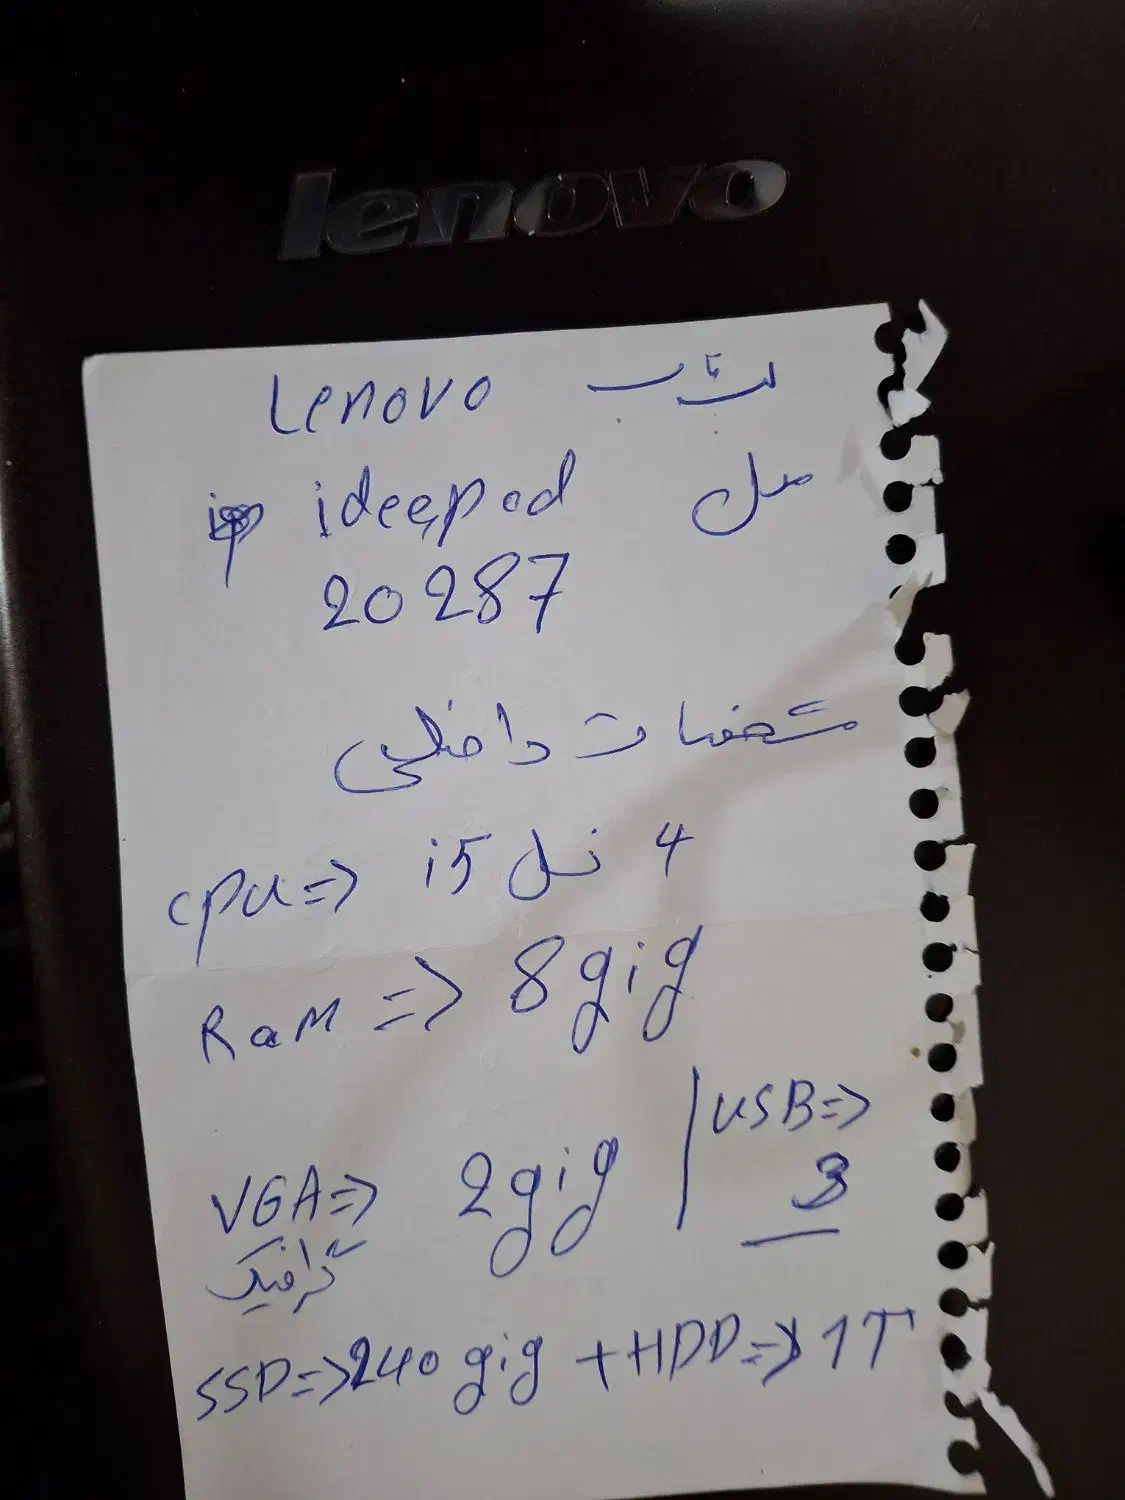 lenovo
لپ تاپ Lenovo
مدل ideapad
20287
مشخصات داخلی
cpu => i5 نسل 4
RaM => 8gig
VGA => 2gig | USB =>
3
گرافیک
SSD => 240 gig + HDD => 1T